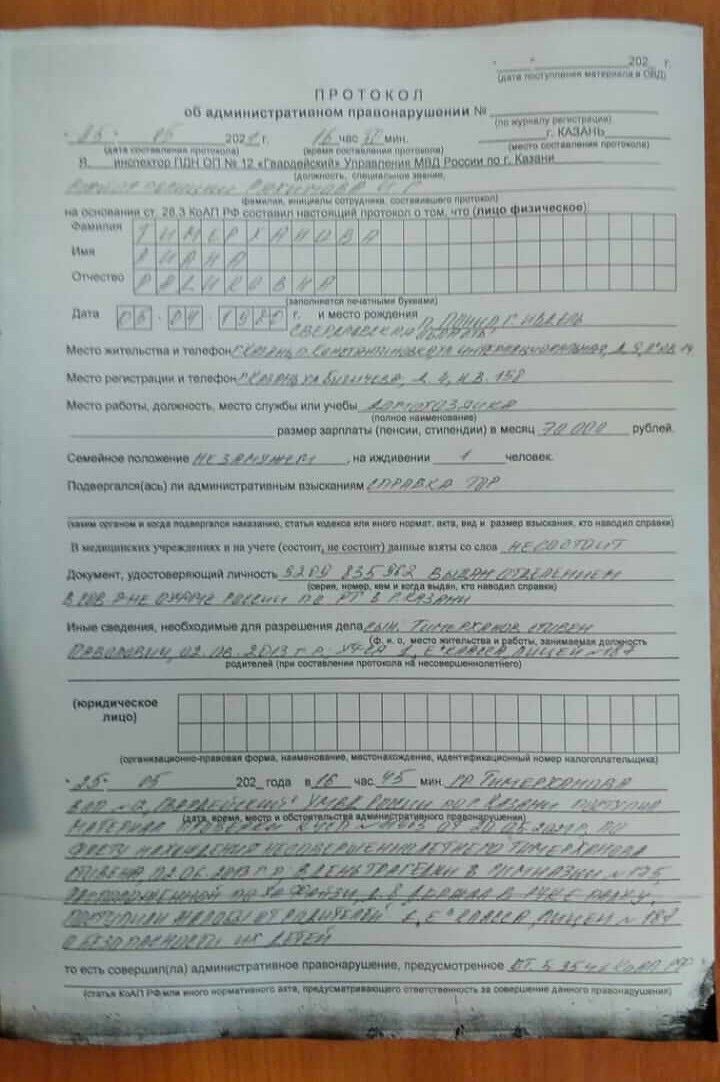 202 г.
(дата поступления материала в ОВД)
ПРОТОКОЛ
об административном правонарушении №
(по журналу регистрации)
25 05 2021 г. 16 час мин. г. КАЗАНЬ
(дата составления протокола) (время составления протокола) (место составления протокола)
Я, инспектор ПДН ОП № 12 «Гвардейский» Управления МВД России по г. Казани
(должность, специальное звание,
фамилия, инициалы сотрудника, составившего протокол)
на основании ст. 28.3 КоАП РФ составил настоящий протокол о том, что (лицо физическое)
Фамилия ТИМЕРХАНОВА
Имя
Отчество
(заполняется печатными буквами)
Дата 03 04 г. и место рождения
СВЕРДЛОВСКАЯ ОБЛАСТЬ
Место жительства и телефон Г. КАЗАНЬ
Место регистрации и телефон Г. КАЗАНЬ
Место работы, должность, место службы или учебы ДОМОХОЗЯЙКА
(полное наименование)
размер зарплаты (пенсии, стипендии) в месяц 70 000 рублей.
Семейное положение НЕ ЗАМУЖЕМ, на иждивении 1 человек.
Подвергался(ась) ли административным взысканиям СПРАВКА
(каким органом и когда подвергался наказанию, статья кодекса или иного нормат. акта, вид и размер взыскания, кто наводил справки)
В медицинских учреждениях и на учете (состоит, не состоит) данные взяты со слов НЕ СОСТОИТ
Документ, удостоверяющий личность 9209 835962 ВЫДАН ОТДЕЛЕНИЕМ
(серия, номер, кем и когда выдан, кто наводил справки)
РОССИИ ПО РТ В Г. КАЗАНИ
Иные сведения, необходимые для разрешения дела СЫН, ТИМЕРХАНОВ СТИВЕН
(ф. и. о, место жительства и работы, занимаемая должность
02.06.2013 Г.Р. КЛАССА ЛИЦЕЙ №187
родителей (при составлении протокола на несовершеннолетнего)
(юридическое
лицо)
(организационно-правовая форма, наименование, местонахождение, идентификационный номер налогоплательщика)
25 05 202 года в 16 час. 45 мин. ГР. ТИМЕРХАНОВА
"ГВАРДЕЙСКИЙ" УМВД РОССИИ ПО Г. КАЗАНИ ПОСТУПИЛ
(дата, время, место и обстоятельства административного правонарушения)
МАТЕРИАЛ ПРОВЕРКИ КУСП ОТ 20.05.2021 Г. ПО
ФАКТУ НАХОЖДЕНИЯ НЕСОВЕРШЕННОЛЕТНЕГО ТИМЕРХАНОВА
СТИВЕНА 02.06.2013 Г.Р. В ДЕНЬ ТРАГЕДИИ В ГИМНАЗИИ №175,
РАСПОЛОЖЕННОЙ ПО ДЕРЖАЛ В РУКЕ ПАЛКУ,
ПОСТУПИЛИ ЖАЛОБЫ ОТ РОДИТЕЛЕЙ КЛАССА ЛИЦЕЙ №187
О БЕЗОПАСНОСТИ ИХ ДЕТЕЙ
то есть совершил(ла) административное правонарушение, предусмотренное СТ. 5.35 КоАП РФ
(статья КоАП РФ или иного нормативного акта, предусматривающего ответственность за совершение данного правонарушения)